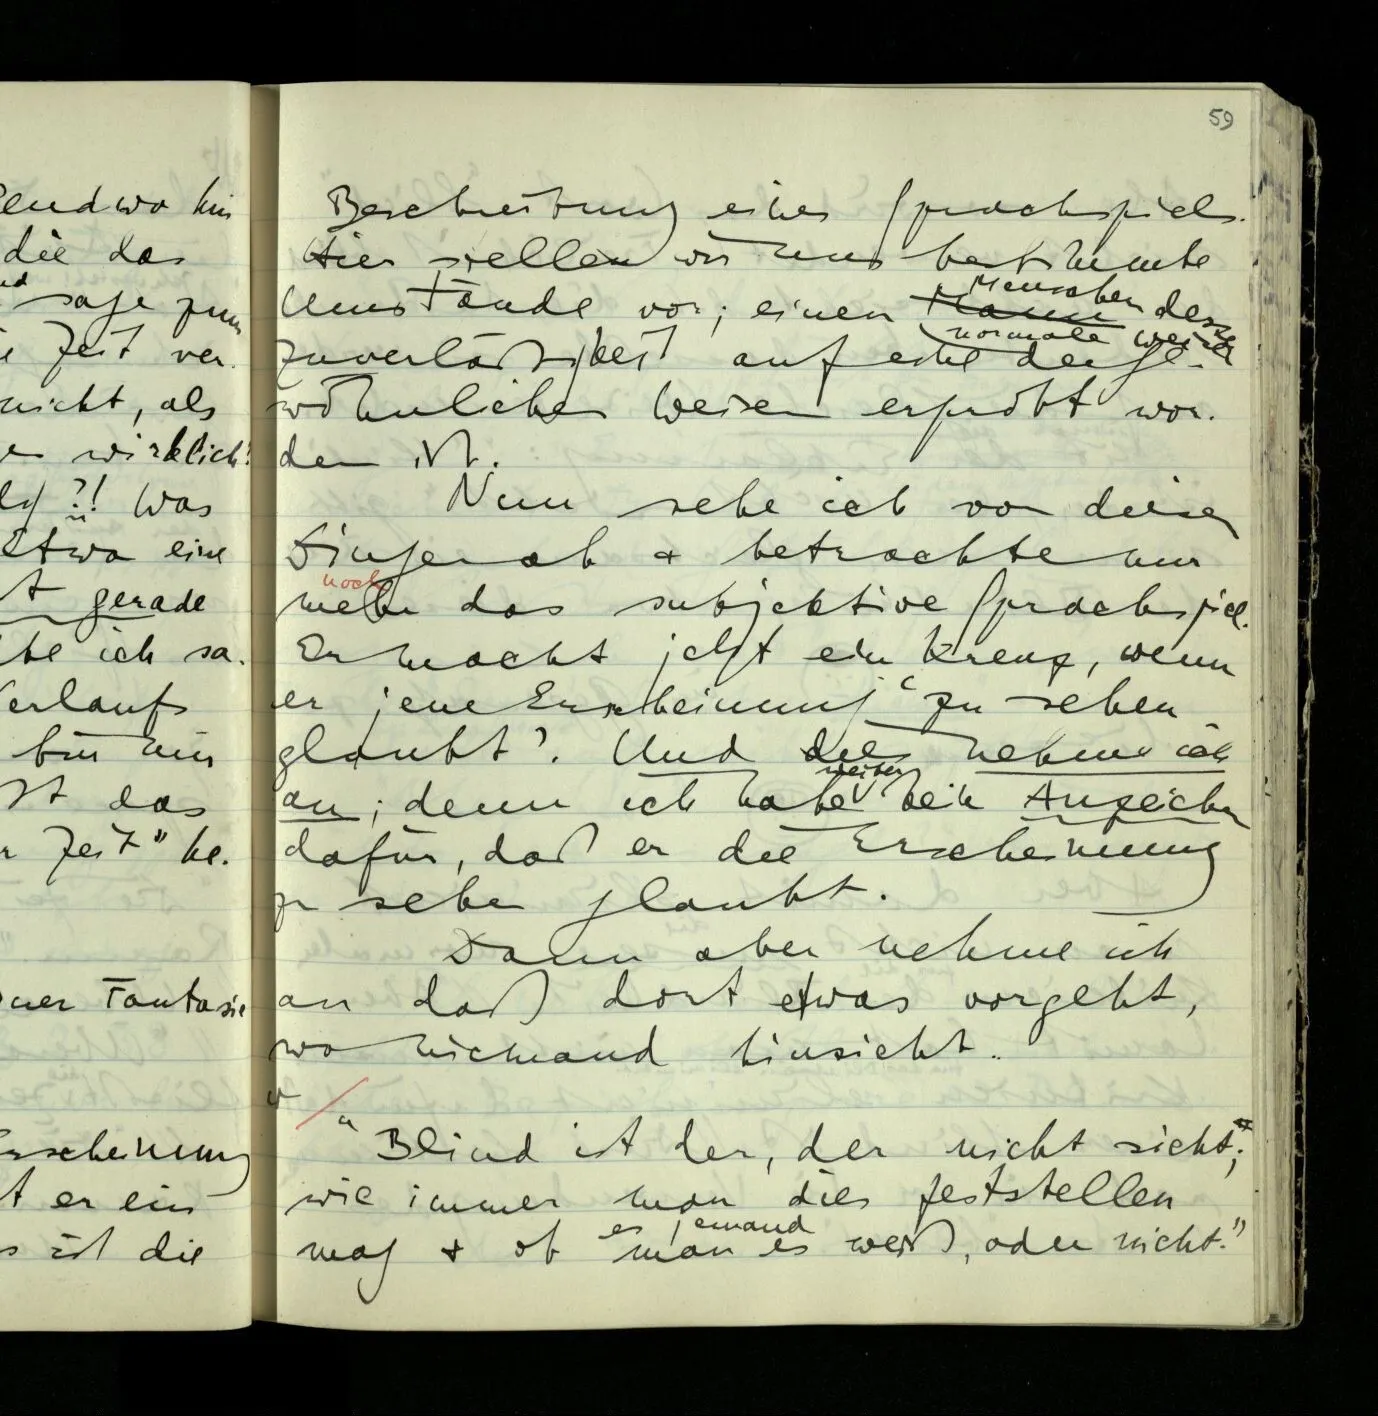 59
endwo hin
die das
sage zum
Zeit ver-
nicht, als
wirklich?
?! Was
Etwa eine
gerade
ich sa-
Verlaufs
bin nun
das
Zeit" be-
Fantasie
Erscheinung
er ein
ist die
Beschreibung eines Sprachspiels.
Hier stellen wir uns bestimmte
Menschen
Umstände vor; einen Mann dessen
normale Weise
Zuverläßigkeit auf eine der ge-
wöhnlichen Weisen erprobt wor-
den ist.
Nun sehe ich von diesen
Dingen ab & betrachte nur
noch
mehr das subjektive Sprachspiel.
Er macht jetzt ein Kreuz, wenn
er jene Erscheinung ‘zu sehen
glaubt’. Und dies nehme ich
weiter
an; denn ich habe kein Anzeichen
dafür, daß er die Erscheinung
zu sehen glaubt.
Dann aber nehme ich
an daß dort etwas vorgeht,
wo niemand hinsieht.
"Blind ist der, der nicht sieht";
wie immer man dies feststellen
es jemand
mag & ob man es weiß, oder nicht."